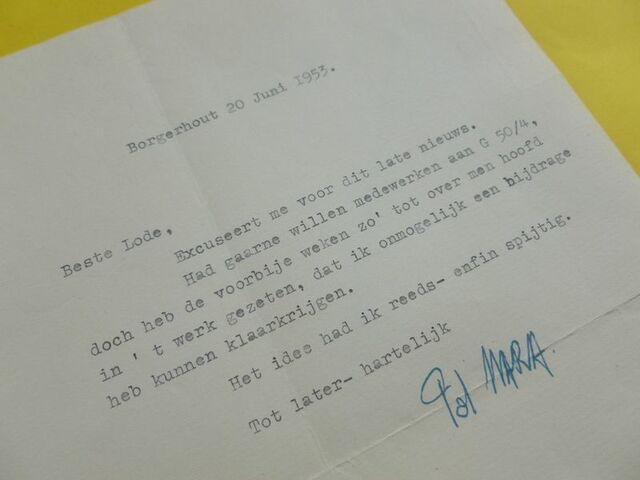 Borgerhout 20 Juni 1953.
Beste Lode,
Excuseert me voor dit late nieuws.
Had gaarne willen medewerken aan G 50/4,
doch heb de voorbije weken zo' tot over men hoofd
in ' t werk gezeten, dat ik onmogelijk een bijdrage
heb kunnen klaarkrijgen.
Het idee had ik reeds- enfin spijtig.
Tot later- hartelijk
Pol MARA.